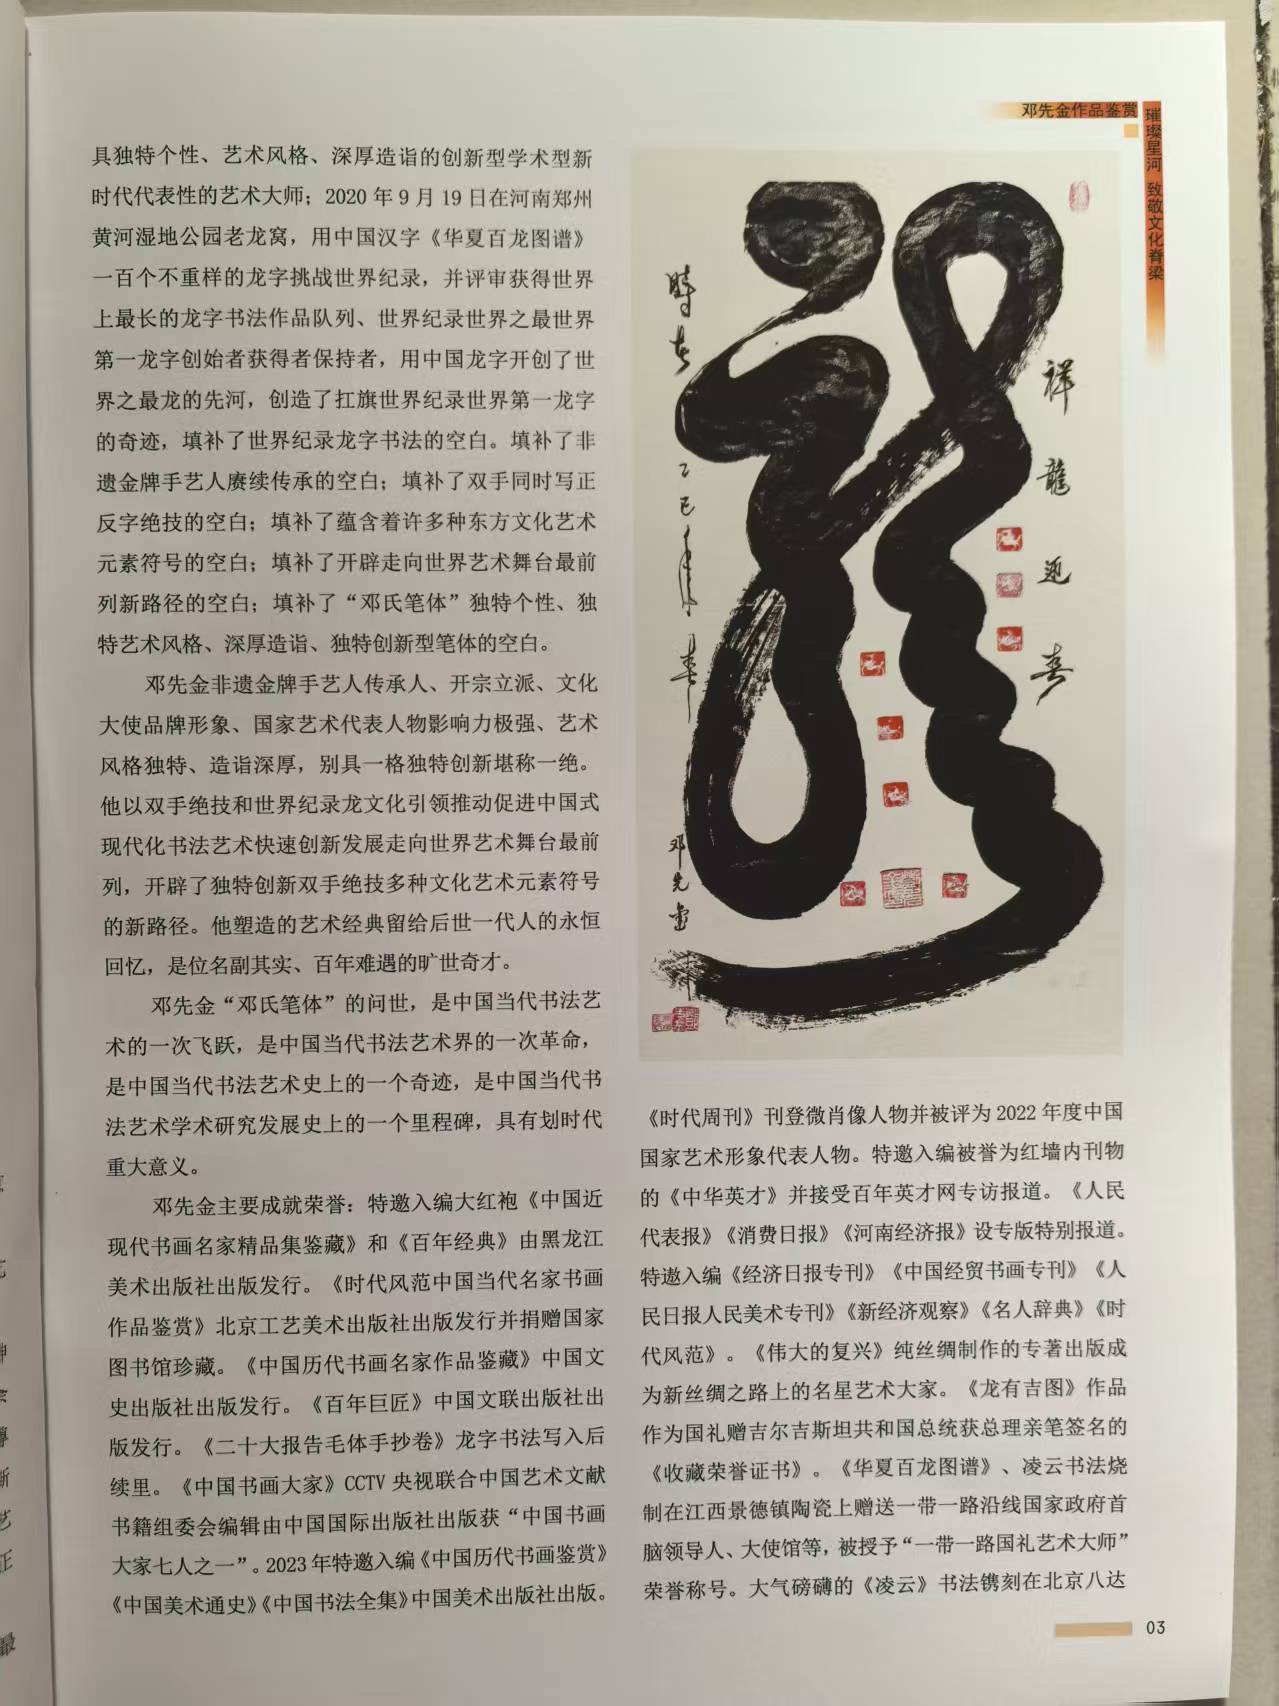 邓先金作品鉴赏
璀璨星河 致敬文化脊梁
具独特个性、艺术风格、深厚造诣的创新型学术型新
时代代表性的艺术大师；2020年9月19日在河南郑州
黄河湿地公园老龙窝，用中国汉字《华夏百龙图谱》
一百个不重样的龙字挑战世界纪录，并评审获得世界
上最长的龙字书法作品队列、世界纪录世界之最世界
第一龙字创始者获得者保持者，用中国龙字开创了世
界之最龙的先河，创造了扛旗世界纪录世界第一龙字
的奇迹，填补了世界纪录龙字书法的空白。填补了非
遗金牌手艺人赓续传承的空白；填补了双手同时写正
反字绝技的空白；填补了蕴含着许多种东方文化艺术
元素符号的空白；填补了开辟走向世界艺术舞台最前
列新路径的空白；填补了“邓氏笔体”独特个性、独
特艺术风格、深厚造诣、独特创新型笔体的空白。
邓先金非遗金牌手艺人传承人、开宗立派、文化
大使品牌形象、国家艺术代表人物影响力极强、艺术
风格独特、造诣深厚，别具一格独特创新堪称一绝。
他以双手绝技和世界纪录龙文化引领推动促进中国式
现代化书法艺术快速创新发展走向世界艺术舞台最前
列，开辟了独特创新双手绝技多种文化艺术元素符号
的新路径。他塑造的艺术经典留给后世一代人的永恒
回忆，是位名副其实、百年难遇的旷世奇才。
邓先金“邓氏笔体”的问世，是中国当代书法艺
术的一次飞跃，是中国当代书法艺术界的一次革命，
是中国当代书法艺术史上的一个奇迹，是中国当代书
法艺术学术研究发展史上的一个里程碑，具有划时代
重大意义。
邓先金主要成就荣誉：特邀入编大红袍《中国近
现代书画名家精品集鉴藏》和《百年经典》由黑龙江
美术出版社出版发行。《时代风范中国当代名家书画
作品鉴赏》北京工艺美术出版社出版发行并捐赠国家
图书馆珍藏。《中国历代书画名家作品鉴藏》中国文
史出版社出版发行。《百年巨匠》中国文联出版社出
版发行。《二十大报告毛体手抄卷》龙字书法写入后
续里。《中国书画大家》CCTV央视联合中国艺术文献
书籍组委会编辑由中国国际出版社出版获“中国书画
大家七人之一”。2023年特邀入编《中国历代书画鉴赏》
《中国美术通史》《中国书法全集》中国美术出版社出版。
祥龍迎春
乙巳年
春
邓先金
《时代周刊》刊登微肖像人物并被评为2022年度中国
国家艺术形象代表人物。特邀入编被誉为红墙内刊物
的《中华英才》并接受百年英才网专访报道。《人民
代表报》《消费日报》《河南经济报》设专版特别报道。
特邀入编《经济日报专刊》《中国经贸书画专刊》《人
民日报人民美术专刊》《新经济观察》《名人辞典》《时
代风范》。《伟大的复兴》纯丝绸制作的专著出版成
为新丝绸之路上的名星艺术大家。《龙有吉图》作品
作为国礼赠吉尔吉斯坦共和国总统获总理亲笔签名的
《收藏荣誉证书》。《华夏百龙图谱》、凌云书法烧
制在江西景德镇陶瓷上赠送一带一路沿线国家政府首
脑领导人、大使馆等，被授予“一带一路国礼艺术大师”
荣誉称号。大气磅礴的《凌云》书法镌刻在北京八达
03